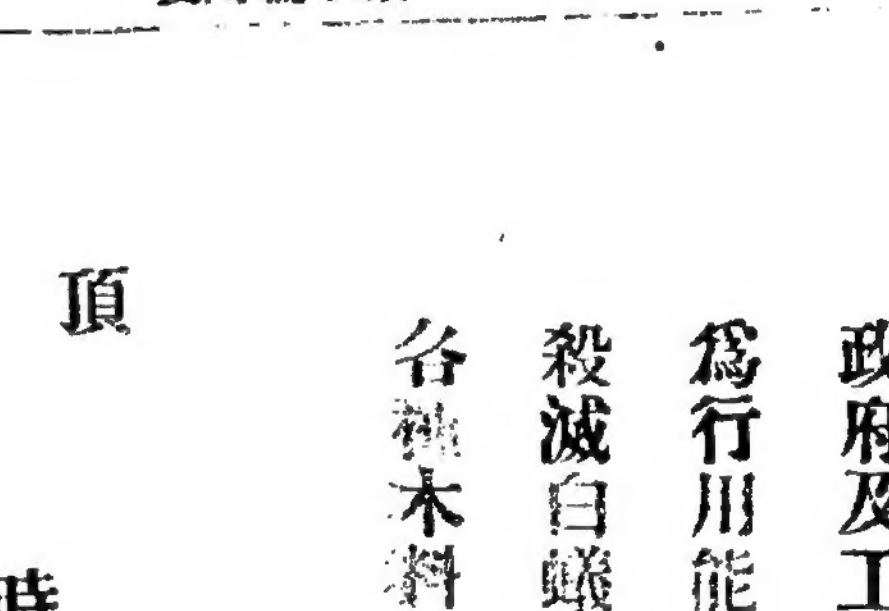 政府及工
為行川能
殺滅白蟻
各種木料
頂
時